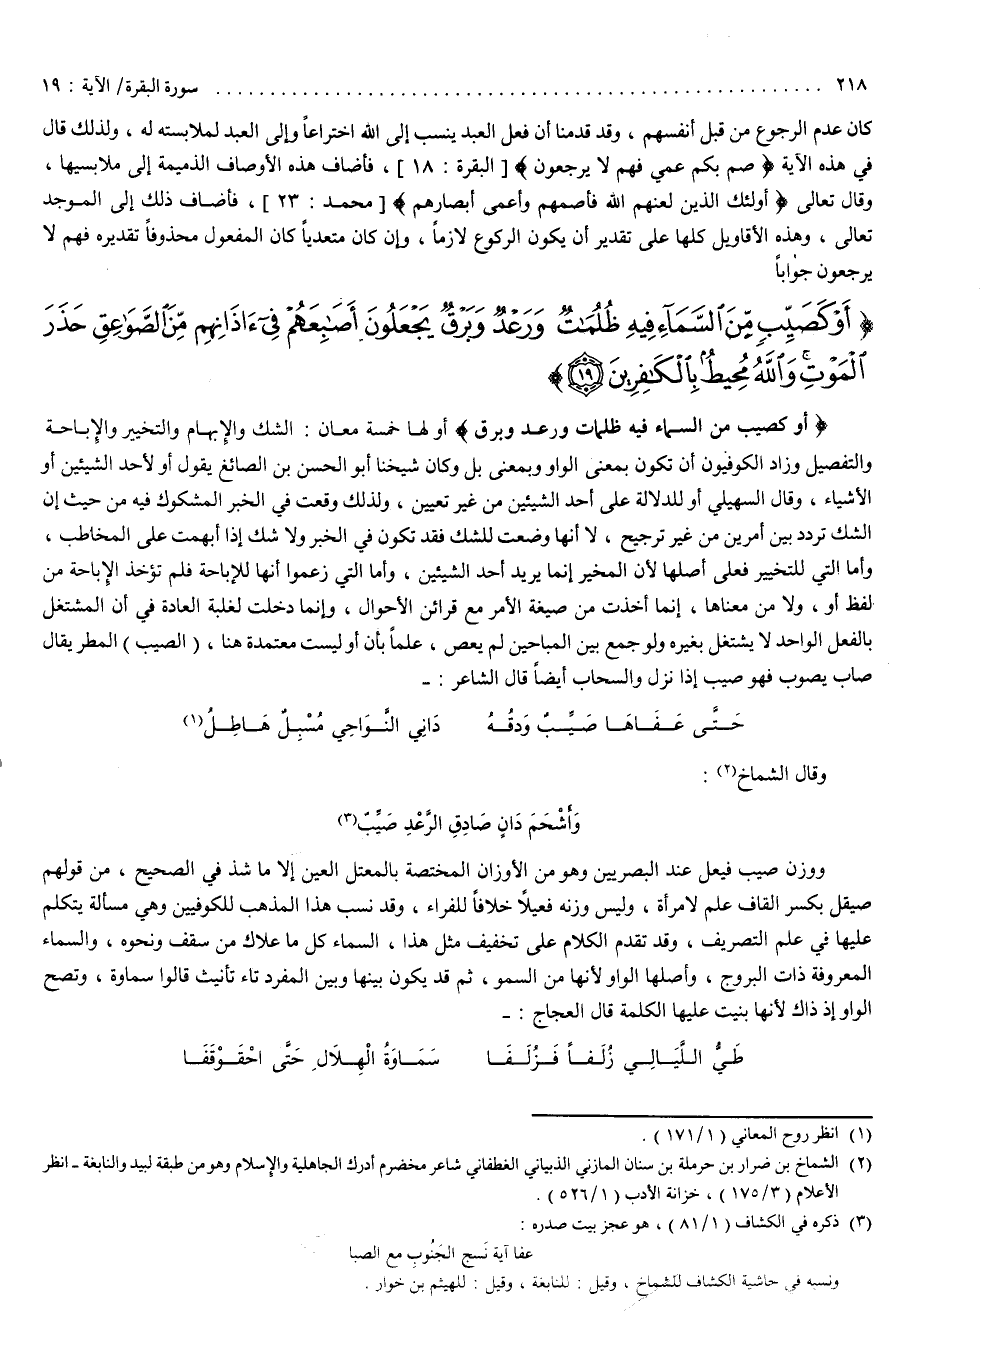 ٢١٨ ........................................................ سورة البقرة/ الآية : ١٩
كان عدم الرجوع من قبل أنفسهم ، وقد قدمنا أن فعل العبد ينسب إلى الله اختراعاً وإلى العبد لملابسته له ، ولذلك قال
في هذه الآية ﴿ صم بكم عمي فهم لا يرجعون ﴾ [ البقرة : ١٨ ] ، فأضاف هذه الأوصاف الذميمة إلى ملابسيها ،
وقال تعالى ﴿ أولئك الذين لعنهم الله فأصمهم وأعمى أبصارهم ﴾ [ محمد : ٢٣ ] ، فأضاف ذلك إلى الموجد
تعالى ، وهذه الأقاويل كلها على تقدير أن يكون الركوع لازماً ، وإن كان متعدياً كان المفعول محذوفاً تقديره فهم لا
يرجعون جواباً
﴿ أَوْ كَصَيِّبٍ مِّنَ ٱلسَّمَآءِ فِيهِ ظُلُمَٰتٌ وَرَعْدٌ وَبَرْقٌ يَجْعَلُونَ أَصَٰبِعَهُمْ فِىٓ ءَاذَانِهِم مِّنَ ٱلصَّوَٰعِقِ حَذَرَ
ٱلْمَوْتِ ۚ وَٱللَّهُ مُحِيطٌۢ بِٱلْكَٰفِرِينَ ١٩ ﴾
﴿ أو كصيب من السماء فيه ظلمات ورعد وبرق ﴾ أو لها خمسة معان : الشك والإبهام والتخيير والإباحة
والتفصيل وزاد الكوفيون أن تكون بمعنى الواو وبمعنى بل وكان شيخنا أبو الحسن بن الصائغ يقول أو لأحد الشيئين أو
الأشياء ، وقال السهيلي أو للدلالة على أحد الشيئين من غير تعيين ، ولذلك وقعت في الخبر المشكوك فيه من حيث إن
الشك تردد بين أمرين من غير ترجيح ، لا أنها وضعت للشك فقد تكون في الخبر ولا شك إذا أبهمت على المخاطب ،
وأما التي للتخيير فعلى أصلها لأن المخير إنما يريد أحد الشيئين ، وأما التي زعموا أنها للإباحة فلم تؤخذ الإباحة من
لفظ أو ، ولا من معناها ، إنما أخذت من صيغة الأمر مع قرائن الأحوال ، وإنما دخلت لغلبة العادة في أن المشتغل
بالفعل الواحد لا يشتغل بغيره ولو جمع بين المباحين لم يعص ، علماً بأن أو ليست معتمدة هنا ، ( الصيب ) المطر يقال
صاب يصوب فهو صيب إذا نزل والسحاب أيضاً قال الشاعر : ـ
حَتَّى عَفَاهَا صَيِّبٌ وَدقُهُ دَانِي النَّوَاحِي مُسْبِلٌ هَاطِلُ(١)
وقال الشماخ(٢) :
وَأَسْحَمَ دَانٍ صَادِقِ الرَّعْدِ صَيِّبٌ(٣)
ووزن صيب فيعل عند البصريين وهو من الأوزان المختصة بالمعتل العين إلا ما شذ في الصحيح ، من قولهم
صيقل بكسر القاف علم لامرأة ، وليس وزنه فعيلاً خلافاً للفراء ، وقد نسب هذا المذهب للكوفيين وهي مسألة يتكلم
عليها في علم التصريف ، وقد تقدم الكلام على تخفيف مثل هذا ، السماء كل ما علاك من سقف ونحوه ، والسماء
المعروفة ذات البروج ، وأصلها الواو لأنها من السمو ، ثم قد يكون بينها وبين المفرد تاء تأنيث قالوا سماوة ، وتصح
الواو إذ ذاك لأنها بنيت عليها الكلمة قال العجاج : ـ
طَيُّ اللَّيَالِي زُلَفاً فَزُلَفَا سَمَاوَةُ الْهِلَالِ حَتَّى احْقَوْقَفَا
(١) انظر روح المعاني ( ١٧١/١ ) .
(٢) الشماخ بن ضرار بن حرملة بن سنان المازني الذبياني الغطفاني شاعر مخضرم أدرك الجاهلية والإسلام وهو من طبقة لبيد والنابغة ـ انظر
الأعلام ( ١٧٥/٣ ) ، خزانة الأدب ( ٥٢٦/١ ) .
(٣) ذكره في الكشاف ( ٨١/١ ) ، هو عجز بيت صدره :
عفا آية نَسج الجَنُوبِ مع الصبا
ونسبه في حاشية الكشاف للشماخ ، وقيل : للنابغة ، وقيل : للهيثم بن خوار .